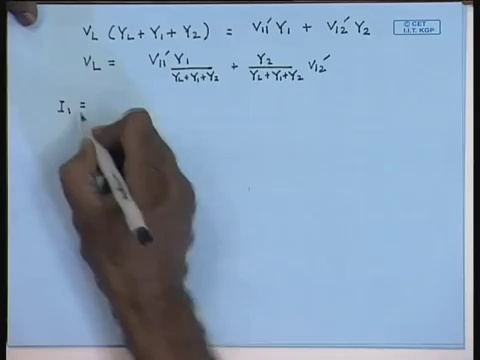 V_L (Y_L + Y_1 + Y_2) = V_11′ Y_1 + V_12′ Y_2
© CET
I.I.T. KGP
V_L = V_11′ Y_1 / (Y_L+Y_1+Y_2) + Y_2 / (Y_L+Y_1+Y_2) V_12′
I_1 =